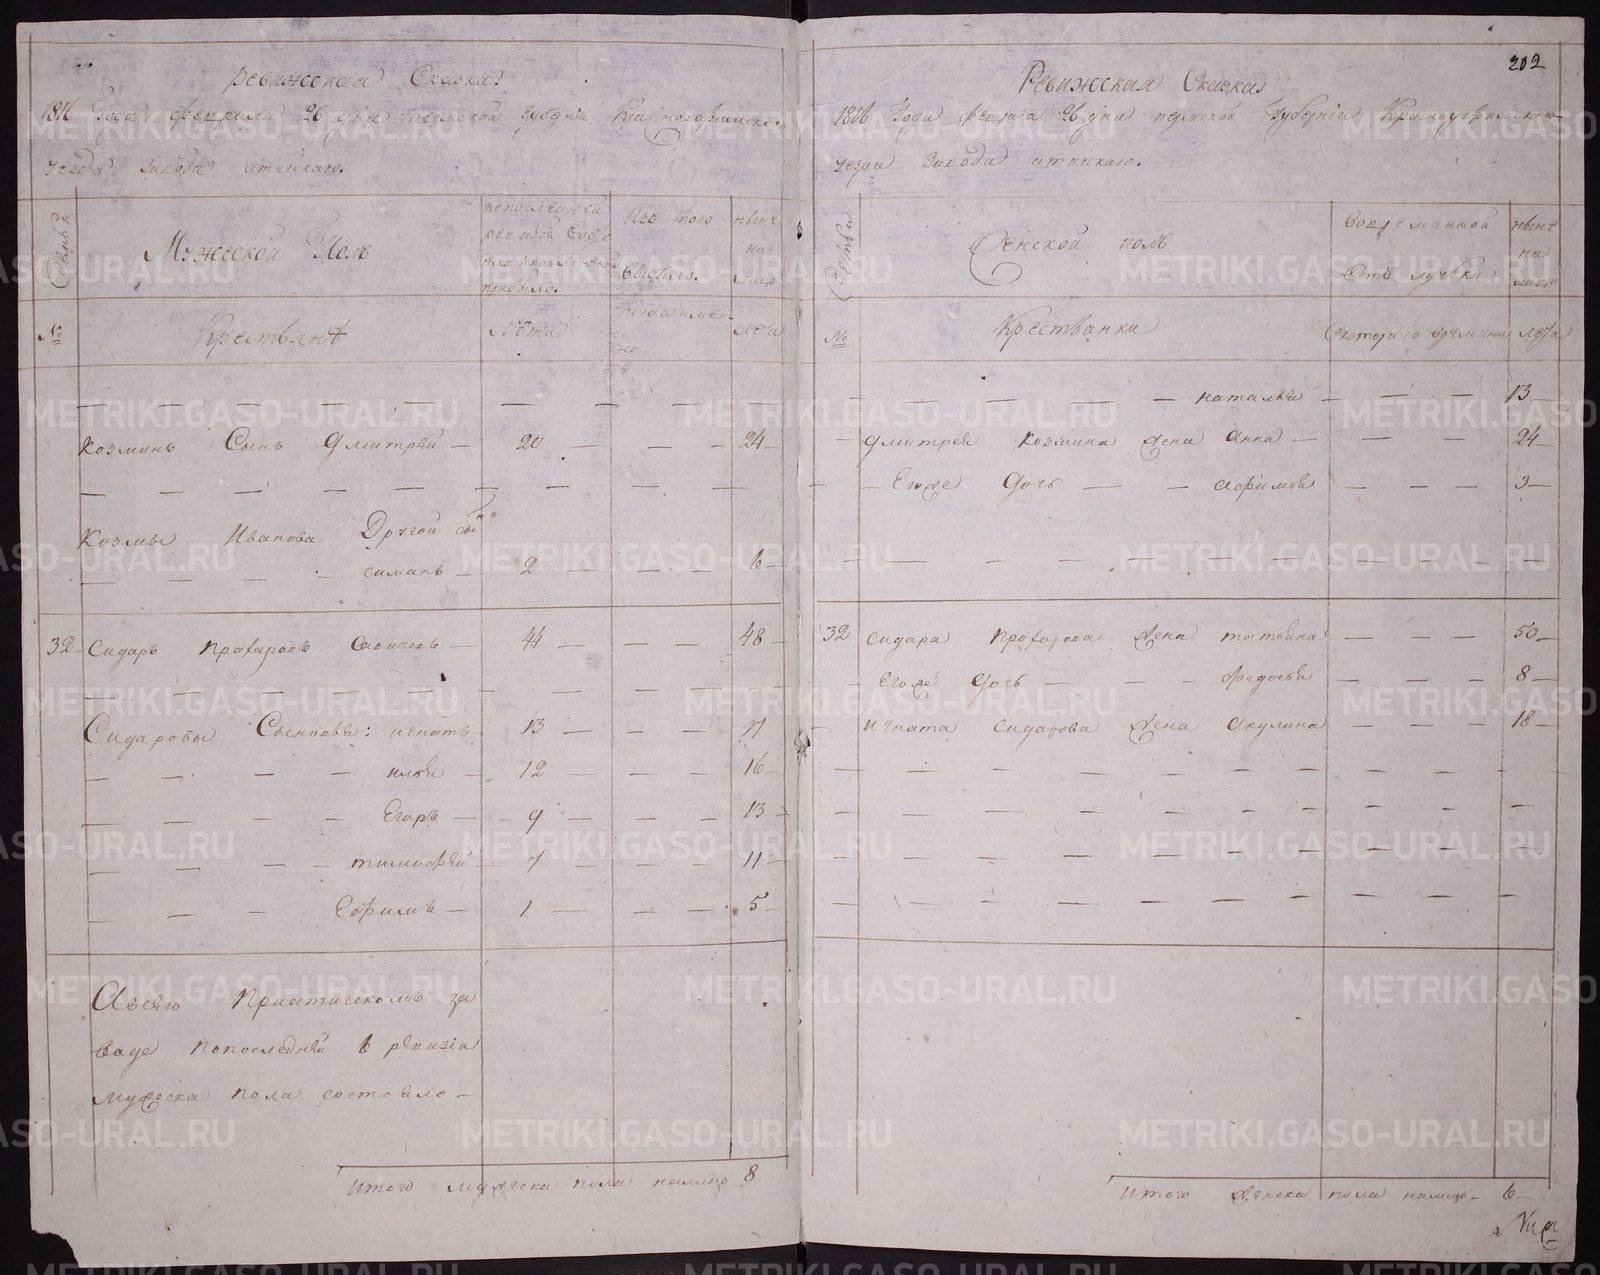 Ревижская Сказка.
1816 Года февраля 26 дня пермской губернии Красноуфимска.
уезда завода атигскаго.
Семьи
Мужеской Полъ
попоследней ревизой Состояло и после оной прибыло.
Изъ того Выбыло.
ныне на лицо
№
Крестьянѣ
лѣта
Когда имен но
лета
— — — — — — — — — —
Козминъ Сынъ Дмитрей — 20 — — — 24 —
— — — — — — — — — —
Козмы Иванова Другой сынъ
— — — — симанъ — 2 — — — 6 —
32 — Сидаръ Прохаровъ — 44 — — — 48 —
— — — — — — — — — —
Сидаровы Сыновья: игнатъ — 13 — — — 17
— — — — илья — 12 — — — 16
— — — — Егоръ — 9 — — — 13
— — — — тимофей — 7 — — — 11 —
— — — Ефимъ — 1 — — — 5 —
Авсяго Приатигскомъ за
воде попоследней 6 ревизiи
мужеска пола состояло —
итого мужеска пола налицо 8
202
Ревижская Сказка
1816 Года февраля 26 дня пермской Губернiи Красноуфимскаго
уезда Завода атигскаго.
Семьи
Женской полъ
Вовременной Отъ лучьки
ныне на лицо
№
Крестьянки
Скотораго времяни
лета
— — — — — наталья — — — 13 —
— Дмитрея Козмина жена Анна — — — 24 —
— Егоже Дочь — — Афимья — — — 3 —
— — — — — — — — — —
32 Сидара Прохарова жена татьяна — — — 50 —
— Егоже Дочь — — — Федосья — — — 8 —
— Игната Сидарова жена Акулина — — — 18 —
— — — — — — — — — —
— — — — — — — — — —
— — — — — — — — — —
— — — — — — — — — —
итого женска пола налицо — 6 —
METRIKI.GASO-URAL.RU